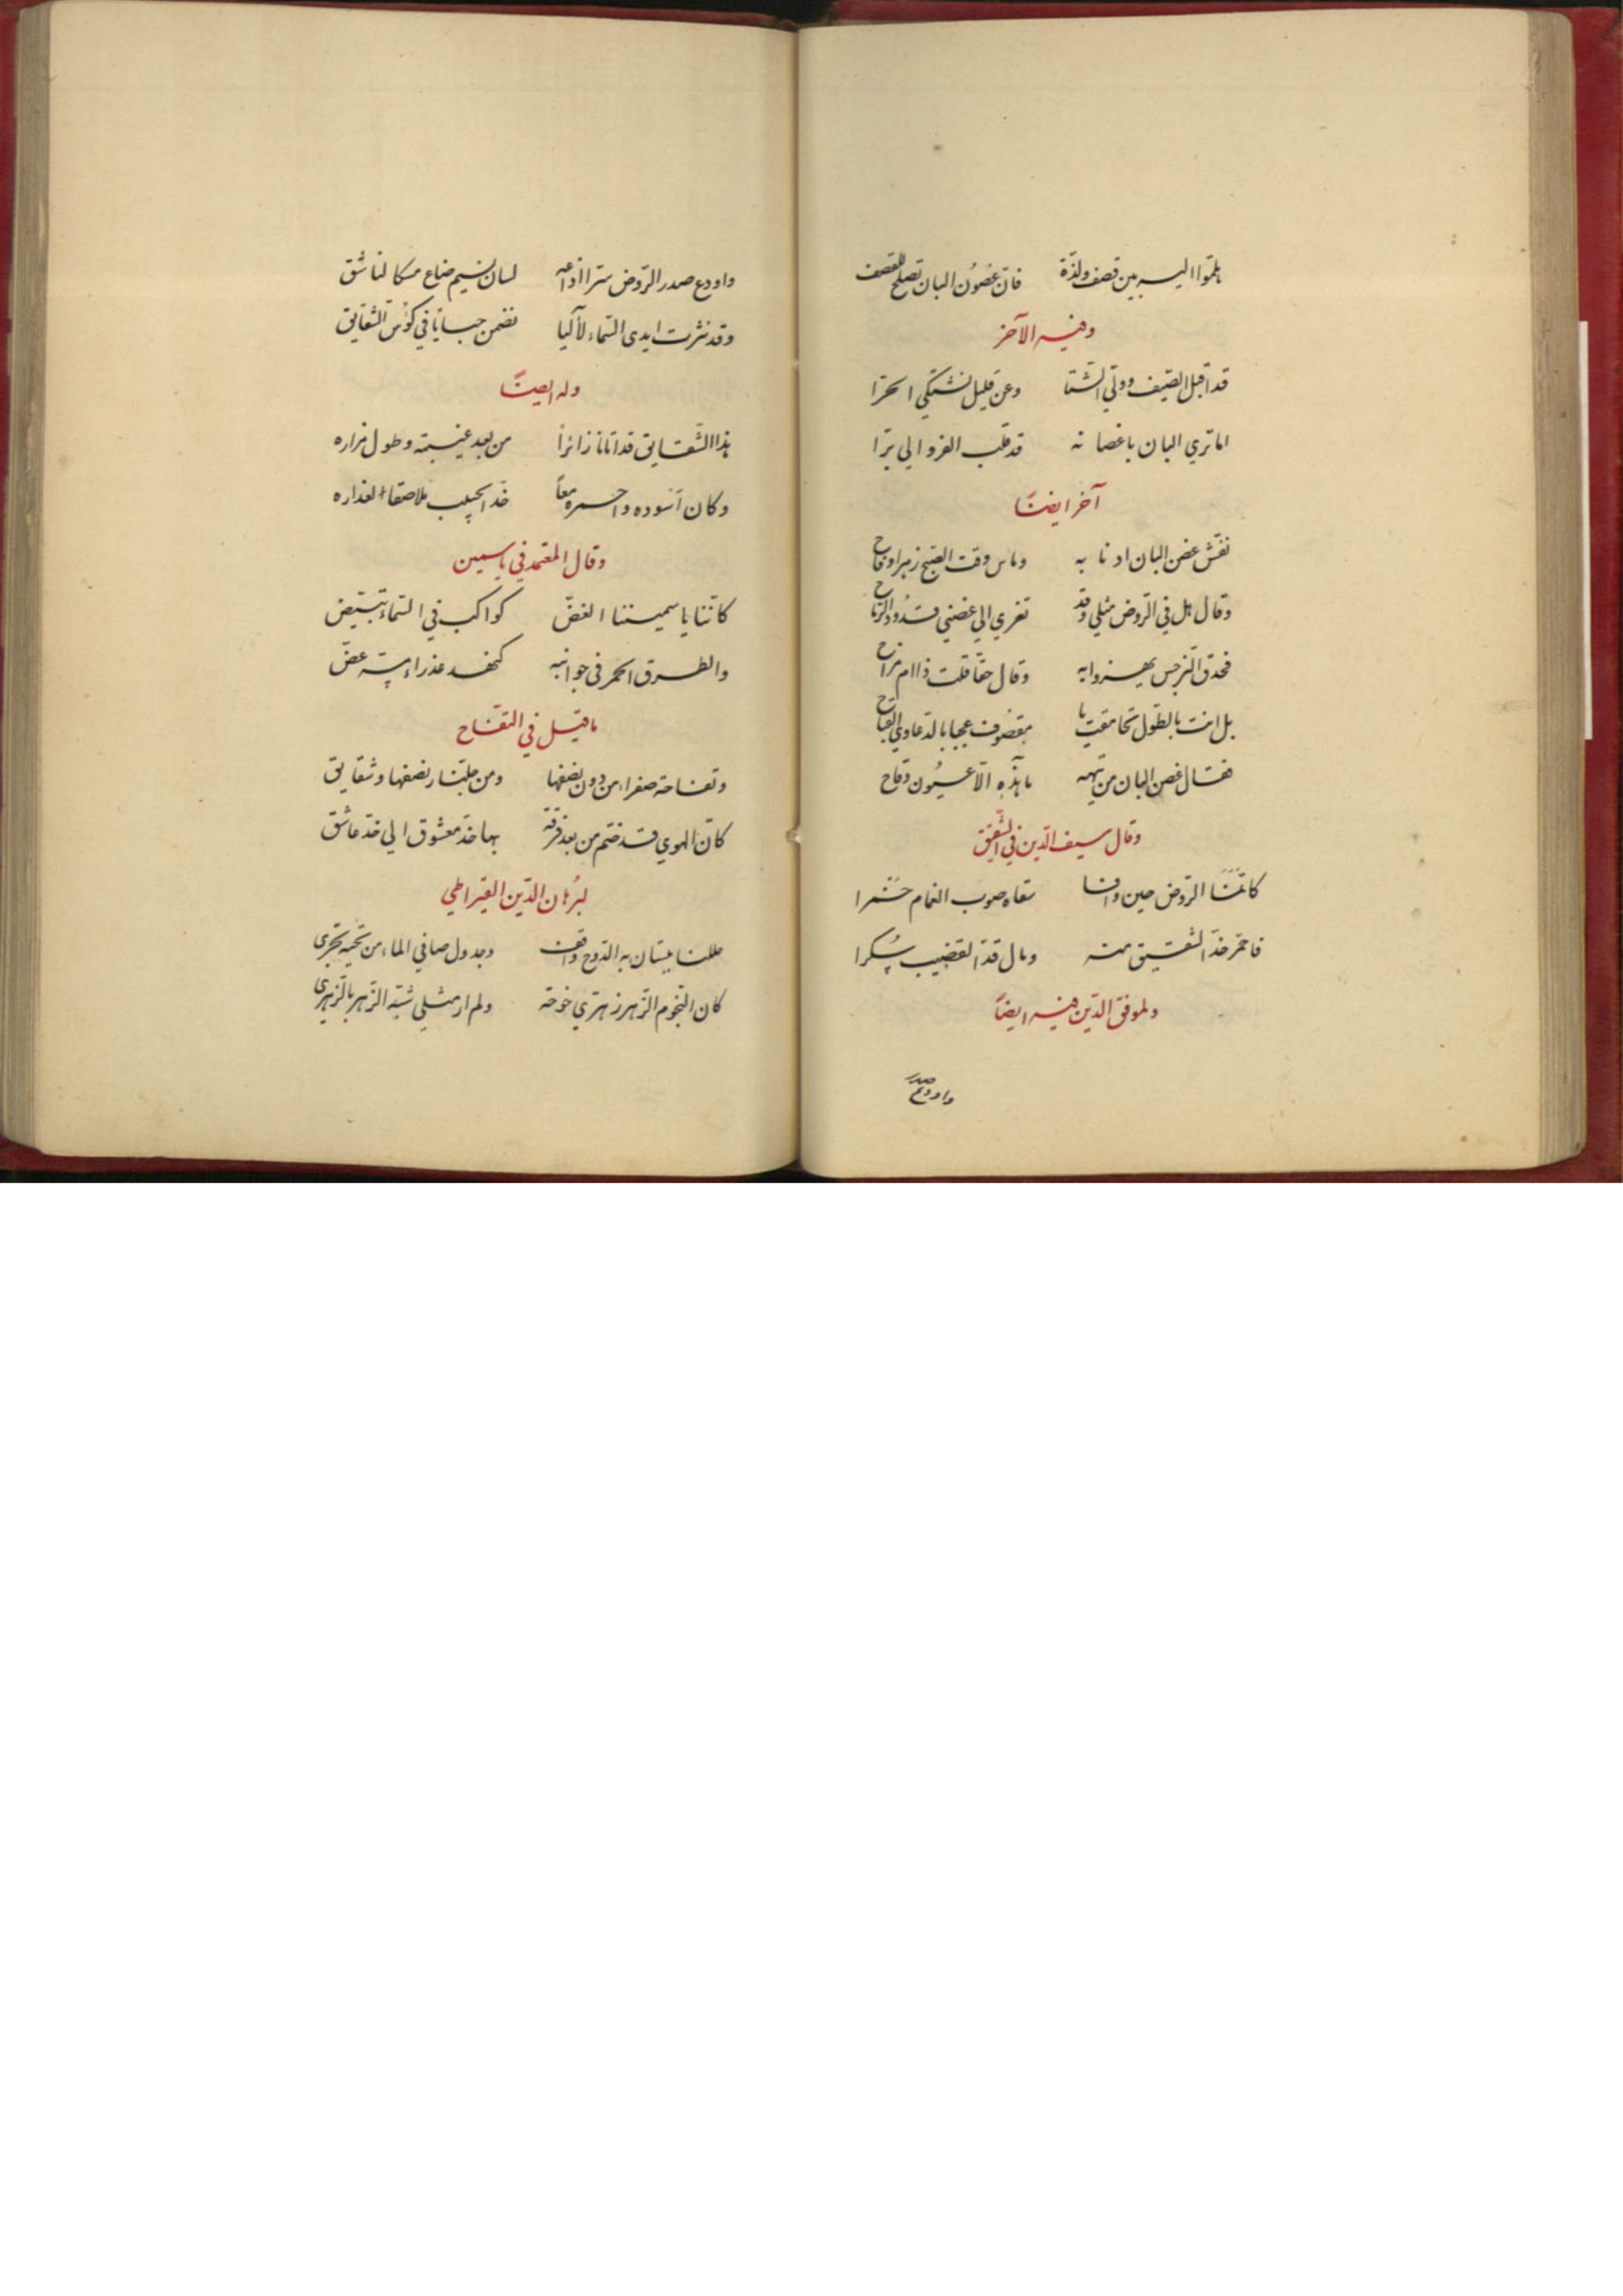 هلموا اليه بين قصف ولذة فان غصون البان تصلح للقصف
وفيه الآخر
قد اقبل الصيف وولي الشتا وعن قليل نشتكي الحرا
اما تري البان باغصانه قد قلب الفرو الي برا
آخر ايضًا
نفش غصن البان اذنابه وماس وقت الصبح زهرا وفاح
وقال هل في الروض مثلي وقد تعزي الي غصني قدود الرماح
فحدق النرجس يهزوا به وقال حقا قلت ذا ام مزاح
بل انت بالطول تحامقت يا مقصوف عجبا بالدعاوي القباح
فقال غصن البان من تيهه ما هذه الا عيون وقاح
وقال سيف الدين في الشقيق
كانما الروض حين وافا سقاه صوب الغمام خمرا
فاحمر خد الشقيق منه ومال قد القضيب سكرا
ولموفق الدين فيه ايضًا
واودع صدر
واودع صدر الروض سترا اذاعه لسان نسيم ضاع مسكا لناشق
وقد نثرت ايدي السماء لآليا تضمن حبابا في كؤس الشقايق
وله ايضًا
هذا الشقايق قد اتانا زائرا من بعد غيبته وطول مزاره
وكان اسوده واحمره معاً خد الحبيب ملاصقا لعذاره
وقال المعتمد في ياسمين
كانما ياسميننا الغض كواكب في السماء تبيض
والطرق الحمر في جوانبه كنهد عذراء مسه عض
ما قيل في التفاح
وتفاحة صفراء من دون نصفها ومن جلنار نصفها وشقايق
كان الهوي قد ضم من بعد فرقة بها خد معشوق الي خد عاشق
لبرهان الدين القيراطي
حللنا ببستان به الدوح واقف وجدول صافي الماء من تحته تجري
كان النجوم الزهر زهري خوخه ولم ار مثلي شبه الزهر بالزهري